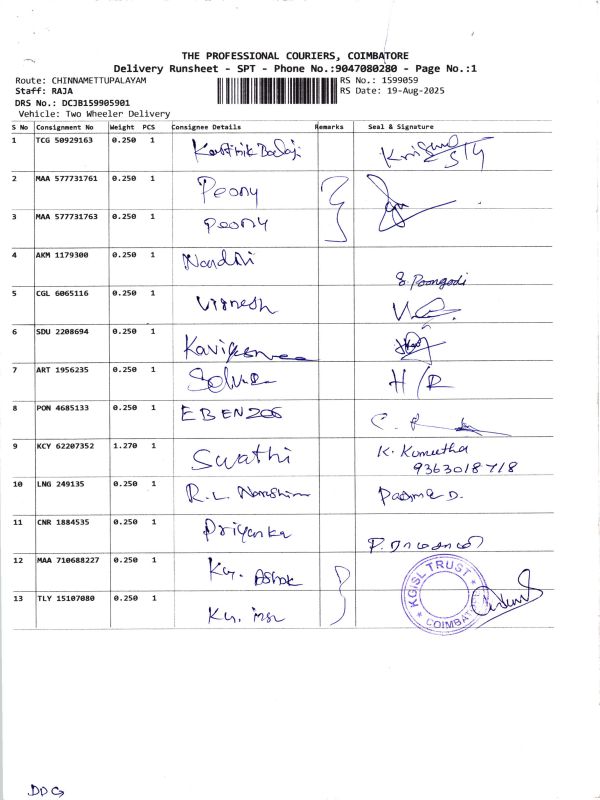 THE PROFESSIONAL COURIERS, COIMBATORE
Delivery Runsheet - SPT - Phone No.:9047080280 - Page No.:1
Route: CHINNAMETTUPALAYAM RS No.: 1599059
Staff: RAJA RS Date: 19-Aug-2025
DRS No.: DCJB159905901
Vehicle: Two Wheeler Delivery
S No Consignment No Weight PCS Consignee Details Remarks Seal & Signature
1 TCG 50929163 0.250 1 Karthik Balaji
2 MAA 577731761 0.250 1 Peony
3 MAA 577731763 0.250 1 Peony
4 AKM 1179300 0.250 1 Nandhi
S. Poongodi
5 CGL 6065116 0.250 1 Vignesh
6 SDU 2208694 0.250 1
7 ART 1956235 0.250 1 Selva H/R
8 PON 4685133 0.250 1 EBEN
9 KCY 62207352 1.270 1 Swathi K. Kumutha
9363018718
10 LNG 249135 0.250 1 R.L. Narashim Padma D.
11 CNR 1884535 0.250 1 Priyanka
12 MAA 710688227 0.250 1 KG. Ashok
13 TLY 15107080 0.250 1 KG.
KGISL TRUST
COIMBAT
DDG